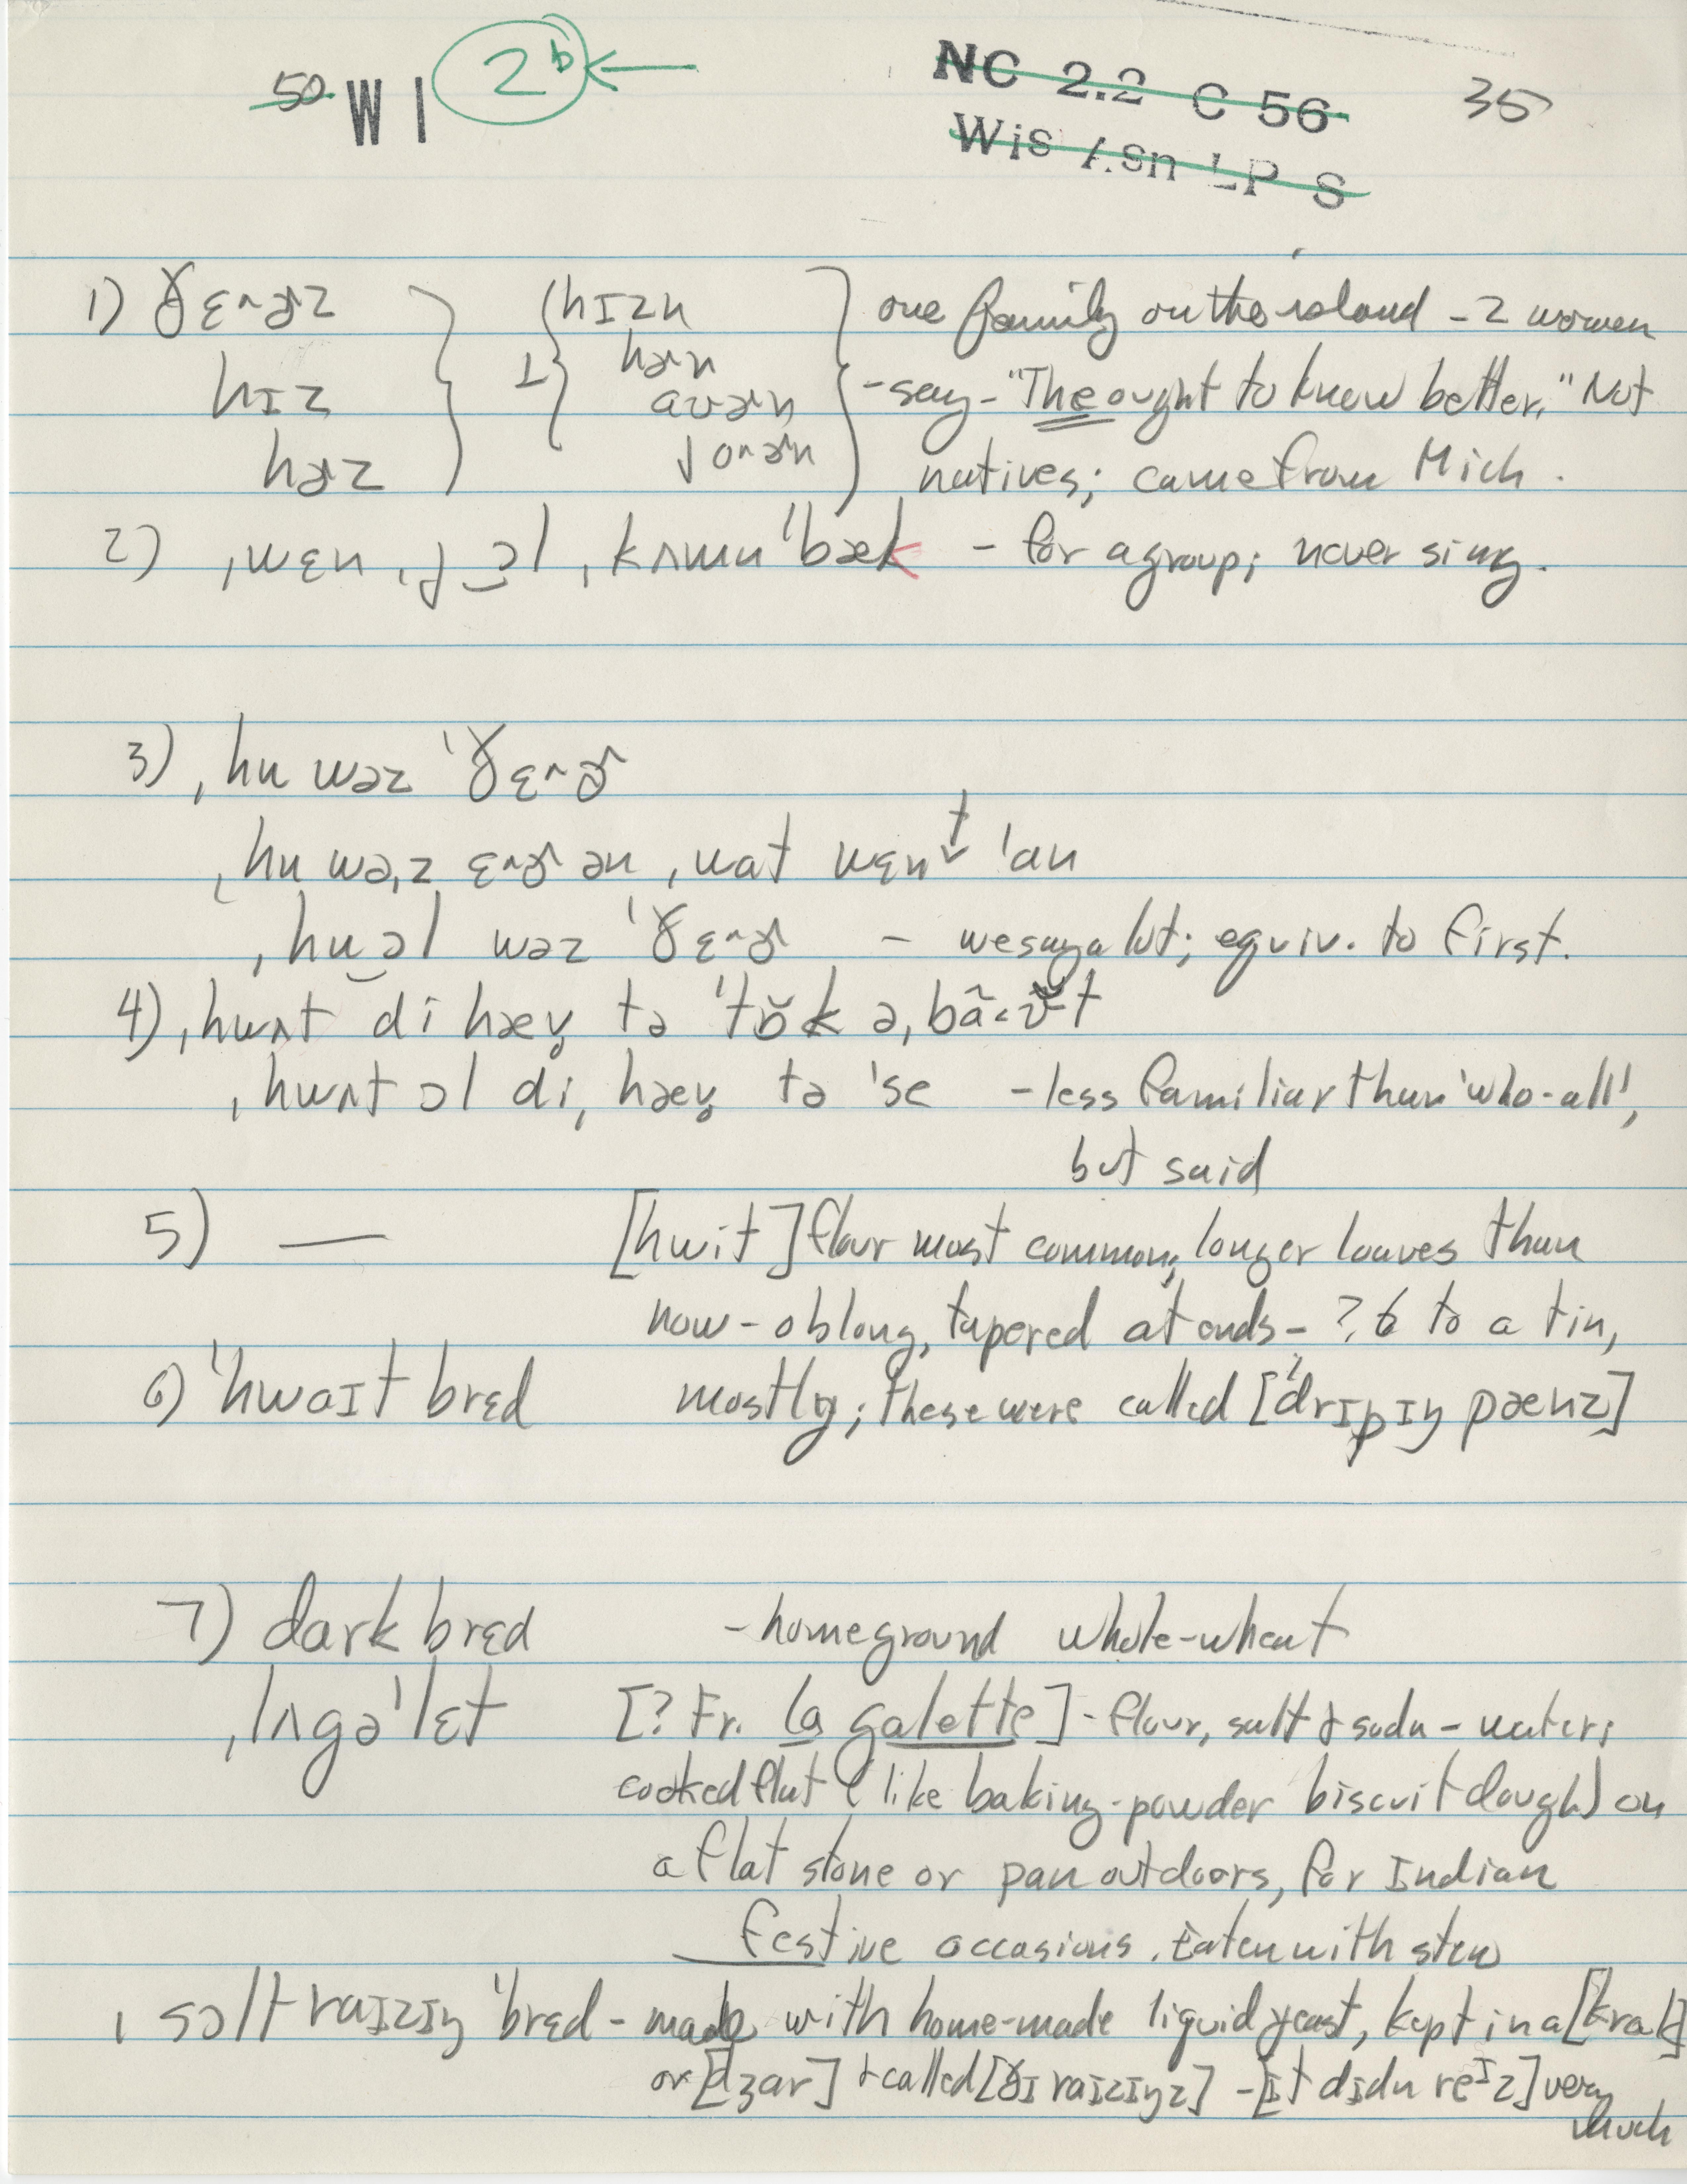 50 W I 2b ←
NC 2.2 C 56
Wis Asn LP S
35
1) ðɛ^ɚz } ⊥ { hɪzn } one family on the island - 2 women
hɪz hɚn - say - "The ought to know better." Not
hɚz aʊɚn natives; came from Mich.
jo^ɚn
2) ˌwɛn ˌjɔl ˌkʌmn ˈbæk - for a group; never sing.
3) ˌhu wəz ˈðɛ^ɚ
ˌhu wəˌz ɛ^ɚ ən ˌwat wɛnt ˈan
ˌhu‿ɔl wəz ˈðɛ^ɚ - we say a lot; equiv. to first.
4) ˌhwʌt di hæv̥ tə ˈtɔ̆k əˌbaʊt
ˌhwʌt ɔl diˌ hæv̥ tə ˈse - less familiar than 'who-all',
but said
5) — [hwit] flour most common; longer loaves than
now - oblong, tapered at ends - ?6 to a tin,
6) ˈhwaɪt brɛd mostly; these were called [ˈdrɪpɪŋ pænz]
7) dark brɛd - homeground whole-wheat
ˌlʌgəˈlɛt [? Fr. la galette] - flour, salt & soda - water;
cooked flat (like baking-powder biscuit dough) on
a flat stone or pan outdoors, for Indian
festive occasions. Eaten with stew
ˌsɔlt raɪzɪŋ ˈbrɛd - made with home-made liquid yeast, kept in a [krak]
or [dʒar] & called [ðɪ raɪzɪŋz] - [ɪt dɪdn reᴵz] very
much